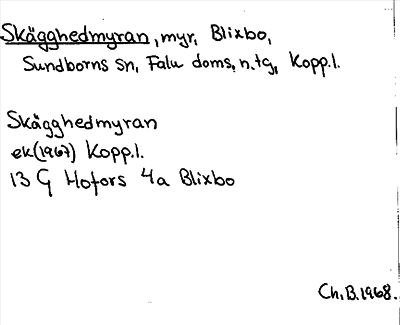 Skägghedmyran, myr, Blixbo,
Sundborns sn, Falu doms. n. tg, Kopp. l.
Skägghedmyran
ek (1967) Kopp. l.
13 G Hofors 4a Blixbo
Ch. B. 1968.